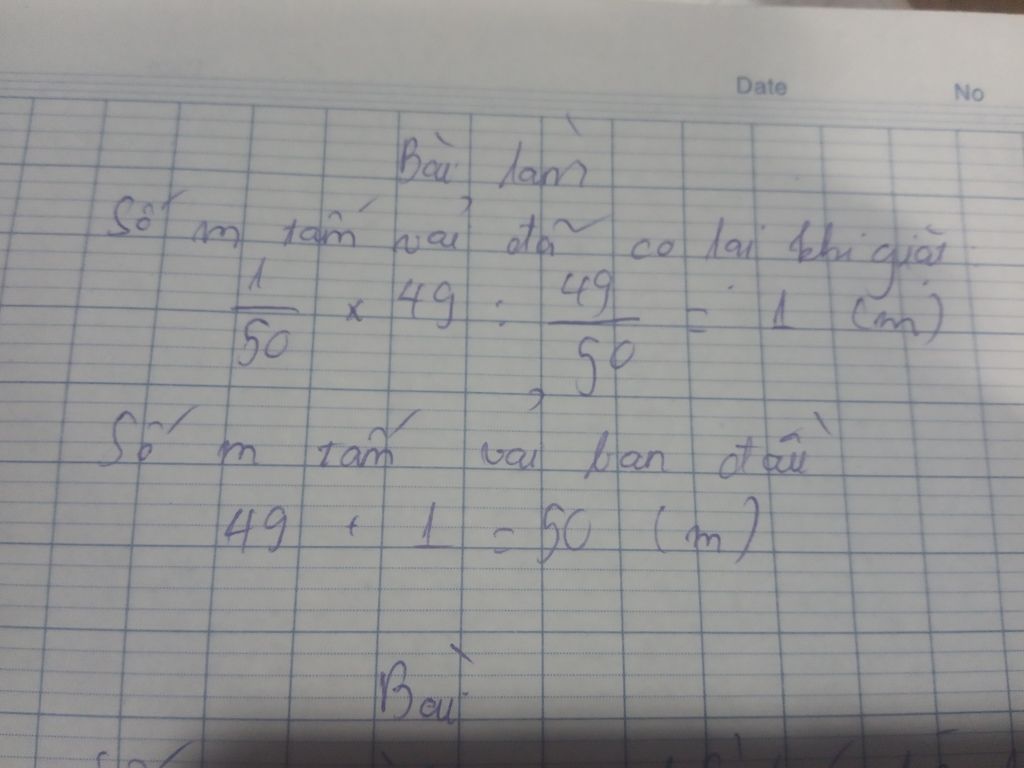 Date No
Bài làm
Số m tấm vải đã co lại khi giặt
1/50 x 49 : 49/50 = 1 (m)
Số m tấm vải ban đầu
49 + 1 = 50 (m)
Bài